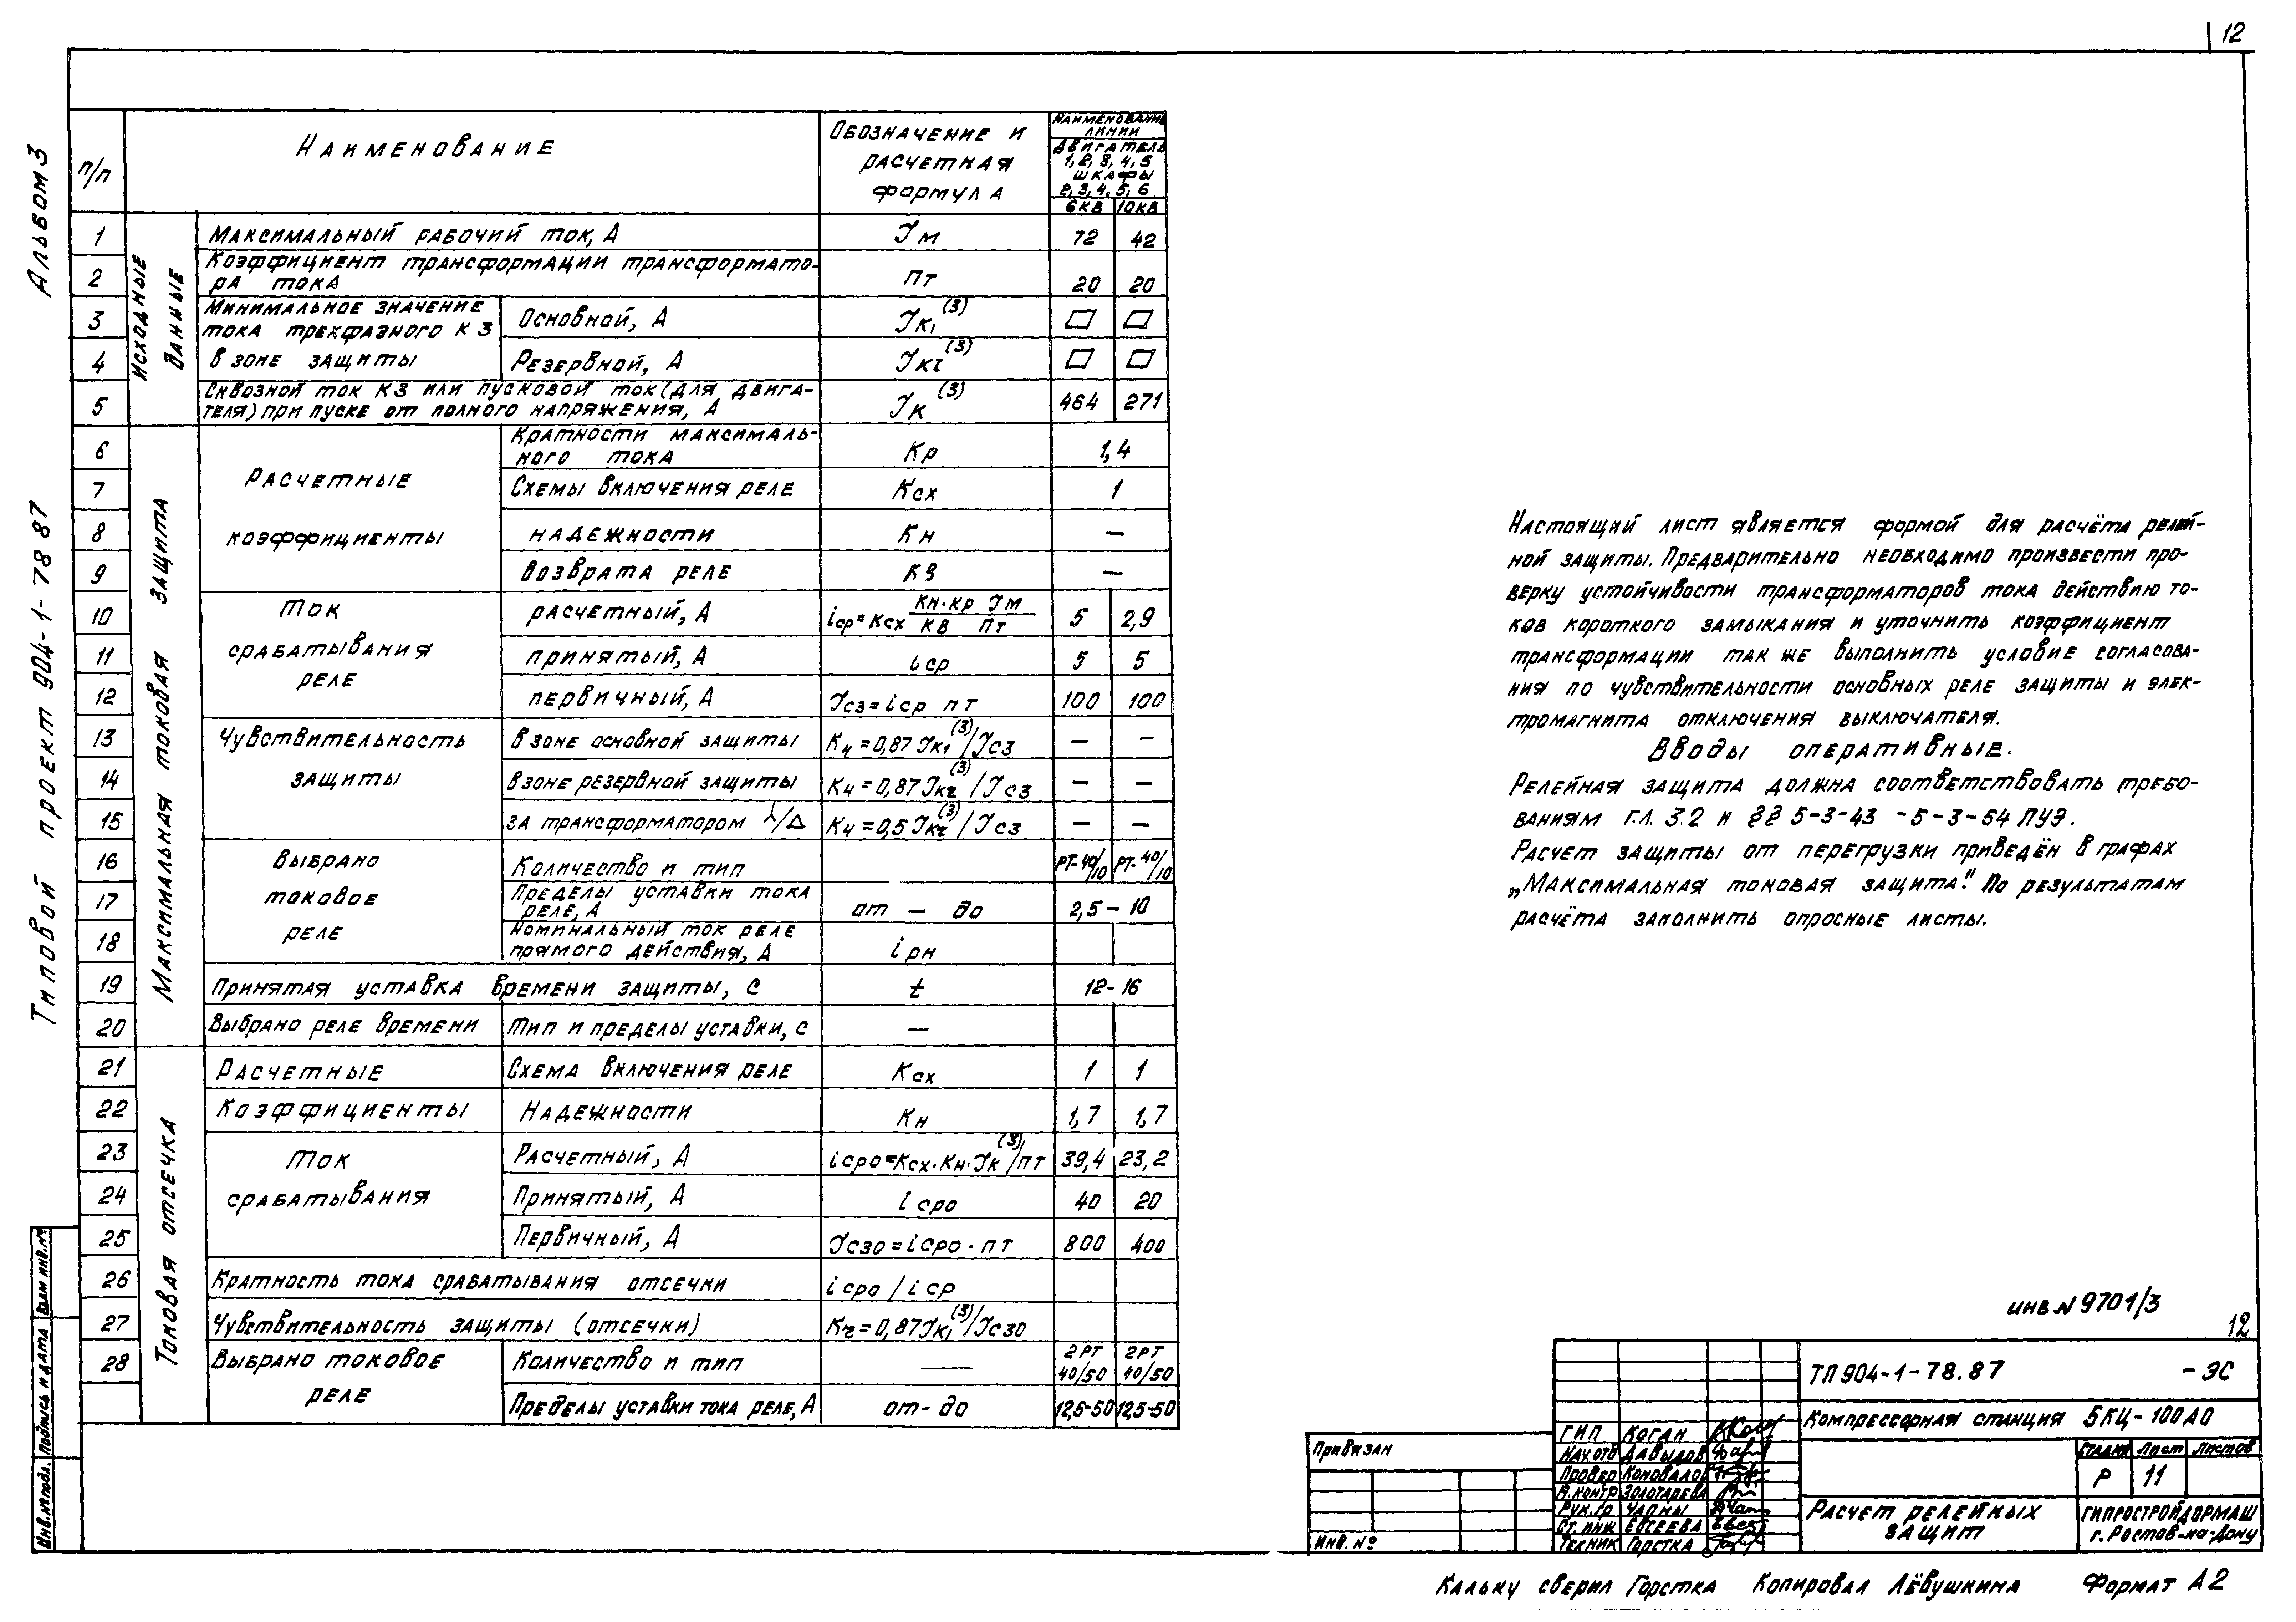 12
Альбом 3
Типовой проект 904-1-78 87
п/п
Наименование
Обозначение и
расчетная
формула
Наименование
линии
Двигатель
1, 2, 3, 4, 5
шкафы
2, 3, 4, 5, 6
6 кв 10 кв
Исходные данные
1 Максимальный рабочий ток, А Iм 72 42
2 Коэффициент трансформации трансформато-
ра тока пт 20 20
Минимальное значение
тока трехфазного КЗ
в зоне защиты
3 Основной, А Iк1(3) ▱ ▱
4 Резервной, А Iк2(3) ▱ ▱
5 Сквозной ток КЗ или пусковой ток (для двига-
теля) при пуске от полного напряжения, А Iк(3) 464 271
Максимальная токовая защита
Расчетные
коэффициенты
6 Кратности максималь-
ного тока Кр 1,4
7 Схемы включения реле Ксх 1
8 надежности Кн —
9 возврата реле Кв —
Ток
срабатывания
реле
10 расчетный, А iср=Ксх Кн·Кр Iм / Кв пт 5 2,9
11 принятый, А iср 5 5
12 первичный, А Iсз=iср пт 100 100
Чувствительность
защиты
13 в зоне основной защиты Кч=0,87 Iк1(3)/Iсз — —
14 в зоне резервной защиты Кч=0,87 Iк2(3)/Iсз — —
15 за трансформатором Y/Δ Кч=0,5 Iк2(3)/Iсз — —
Выбрано
токовое
реле
16 Количество и тип — РТ-40/10 РТ-40/10
17 Пределы уставки тока
реле, А от — до 2,5 - 10
18 Номинальный ток реле
прямого действия, А iрн
19 Принятая уставка времени защиты, с t 12-16
20 Выбрано реле времени Тип и пределы уставки, с —
Токовая отсечка
Расчетные
Коэффициенты
21 Схема включения реле Ксх 1 1
22 Надежности Кн 1,7 1,7
Ток
срабатывания
23 Расчетный, А iсро=Ксх·Кн·Iк(3)/пт 39,4 23,2
24 Принятый, А iсро 40 20
25 Первичный, А Iсзо=iсро·пт 800 400
26 Кратность тока срабатывания отсечки iсро/iср
27 Чувствительность защиты (отсечки) Кч=0,87Iк1(3)/Iсзо
28 Выбрано токовое
реле
Количество и тип — 2РТ 40/50 2РТ 40/50
Пределы уставки тока реле, А от - до 12,5-50 12,5-50
Настоящий лист является формой для расчёта релей-
ной защиты. Предварительно необходимо произвести про-
верку устойчивости трансформаторов тока действию то-
ков короткого замыкания и уточнить коэффициент
трансформации так же выполнить условие согласова-
ния по чувствительности основных реле защиты и элек-
тромагнита отключения выключателя.
Вводы оперативные.
Релейная защита должна соответствовать требо-
ваниям гл. 3.2 и §§ 5-3-43 - 5-3-54 ПУЭ.
Расчет защиты от перегрузки приведён в графах
„Максимальная токовая защита." По результатам
расчёта заполнить опросные листы.
инв N 9701/3
12
ТП 904-1-78.87 - ЭС
Компрессорная станция 5КЦ-100А0
Стадия Лист Листов
Р 11
Расчет релейных
защит
Гипростройдормаш
г. Ростов-на-Дону
ГИП Коган
Нач.отд Давыдов
Провер Коновалов
Н.контр Золотарева
Рук.гр Чапны
Ст.инж Евсеева
Техник Горстка
Привязан
Инв. №
Взам инв.№
Подпись и дата
Инв.№ подл.
Кальку сверил Горстка Копировал Лёвушкина Формат А2